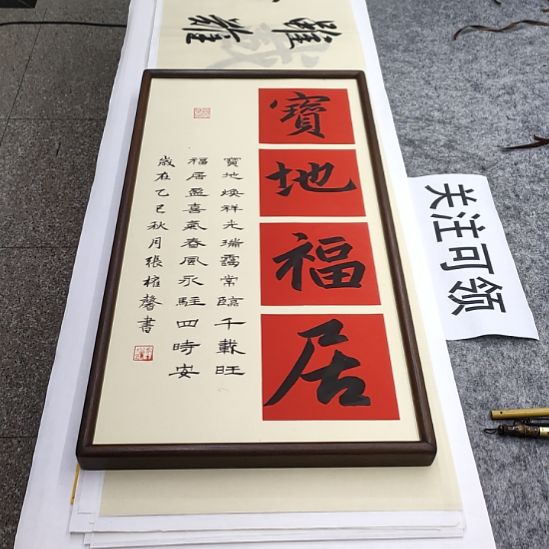 寶地福居
寶地煥祥光瑞靄常臨千載旺
福居盈喜氣春風永駐四時安
歲在乙巳秋月張榷馨書
关注可领
雖
難